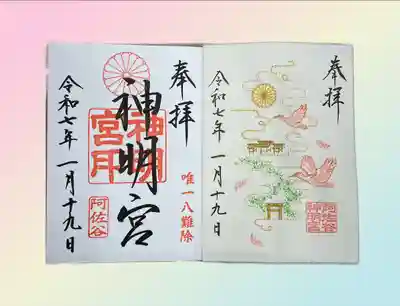 奉拝
神明宮
神明宮印
唯一八難除
令和七年一月十九日
阿佐谷
奉拝
令和七年一月十九日
阿佐谷神明宮